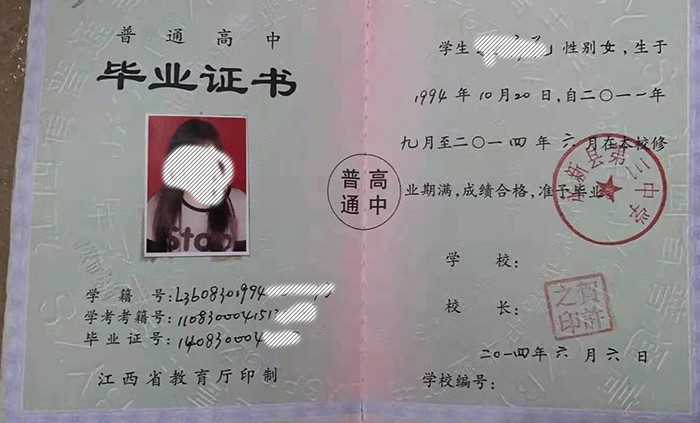 普通高中
毕业证书
Stop
学籍号:L3608301994
学考考籍号:110830004151
毕业证号:140830004
江西省教育厅印制
普通
高中
学生 性别女,生于
1994年10月20日,自二〇一一年
九月至二〇一四年六月在本校修
业期满,成绩合格,准予毕业。
永新县第三中学
学校:
校长:
贺许
之印
二〇一四年六月六日
学校编号: